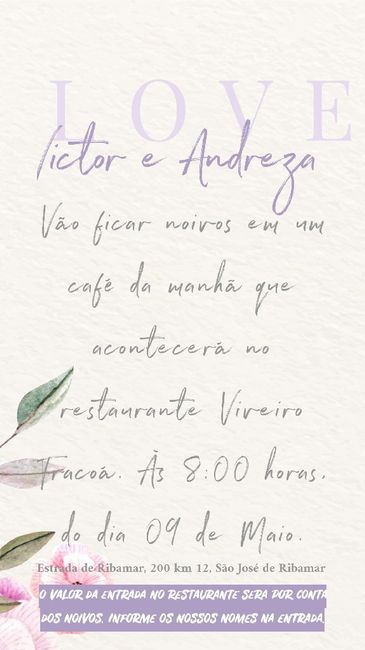 LOVE
Victor e Andreza
Vão ficar noivos em um
café da manhã que
acontecerá no
restaurante Viveiro
Tracoá. Às 8:00 horas.
do dia 09 de Maio.
Estrada de Ribamar, 200 km 12, São José de Ribamar
O VALOR DA ENTRADA NO RESTAURANTE SERÁ POR CONTA
DOS NOIVOS. INFORME OS NOSSOS NOMES NA ENTRADA.